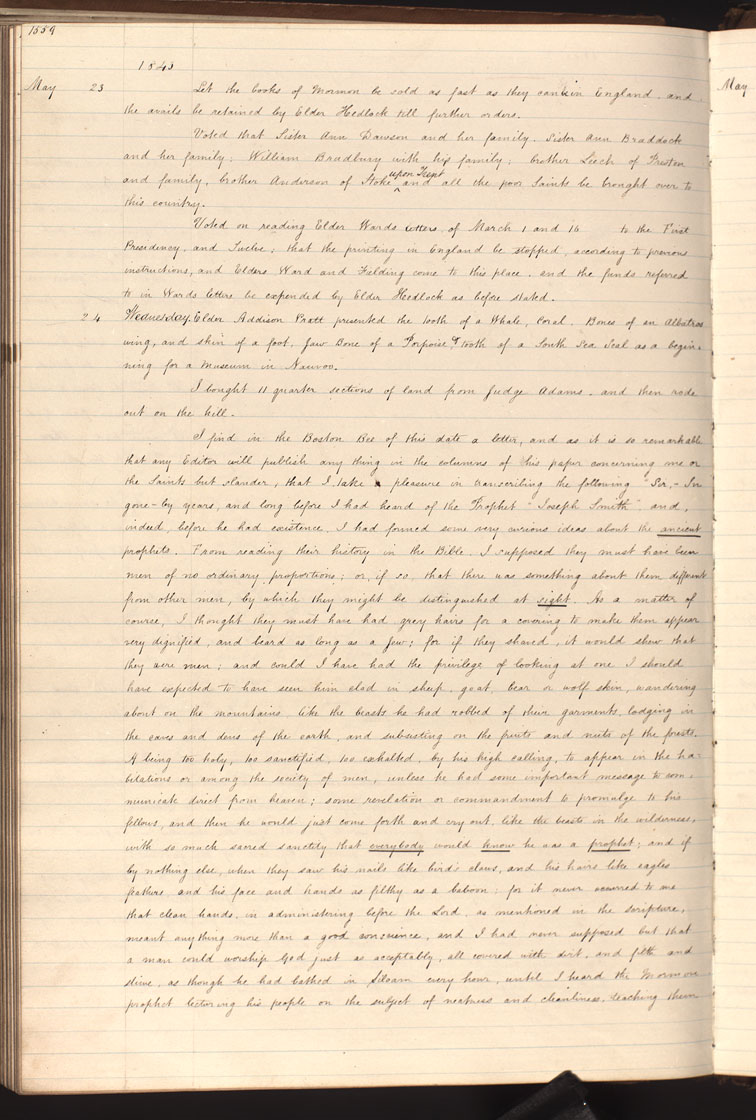 1559
1843
May 23 Let the books of Mormon be sold as fast as they can in England, and May
the avails be retained by Elder Hedlock till further orders.
Voted that Sister Ann Dawson and her family, Sister Ann Braddock
and her family; William Bradbury with his family; brother Leech of Preston
and family, brother Anderson of Stoke ^upon Trent and all the poor Saints be brought over to
this country.
Voted on reading Elder Wards letters of March 1 and 16 to the First
Presidency, and Twelve; that the printing in England be stopped, according to previous
instructions, and Elders Ward and Fielding come to this place, and the funds referred
to in Wards letter be expended by Elder Hedlock as before stated.
24 Wednesday. Elder Addison Pratt presented the tooth of a Whale, Coral, Bones of an Albatross
wing, and skin of a foot, Jaw Bone of a Porpoise & tooth of a South Sea Seal as a begin-
ning for a Museum in Nauvoo.
I bought 11 quarter sections of land from Judge Adams, and then rode
out on the hill.
I find in the Boston Bee of this date a letter, and as it is so remarkable
that any Editor will publish any thing in the columns of his paper concerning me or
the Saints but slander, that I take pleasure in transcribing the following "Sir,- In
gone-by years, and long before I had heard of the Prophet "Joseph Smith", and,
indeed, before he had existence, I had formed some very curious ideas about the ancient
prophets. From reading their history in the Bible, I supposed they must have been
men of no ordinary proportions; or, if so, that there was something about them different
from other men, by which they might be distinguished at sight. As a matter of
course, I thought they must have had grey hairs for a covering to make them appear
very dignified, and beard as long as a Jew; for if they shaved, it would shew that
they were men; and could I have had the privilege of looking at one I should
have expected to have seen him clad in sheep, goat, bear or wolf skin, wandering
about on the mountains like the beasts he had robbed of their garments, lodging in
the caves and dens of the earth, and subsisting on the fruits and nuts of the forests.
A being too holy, too sanctified, too exhalted, by his high calling, to appear in the ha-
bitations or among the society of men, unless he had some important message to com-
municate direct from heaven; some revelation or commandment to promulge to his
fellows, and then he would just come forth and cry out, like the beasts in the wilderness,
with so much sacred sanctity that everybody would know he was a prophet; and if
by nothing else, when they saw his nails like bird's claws, and his hairs like eagles
feathers and his face and hands as filthy as a baboon; for it never occurred to me
that clean hands, in administering before the Lord, as mentioned in the scripture,
meant anything more than a good conscience, and I had never supposed but that
a man could worship God just as acceptably, all covered with dirt, and filth and
slime, as though he had bathed in Siloam every hour, until I heard the Mormon
prophet lecturing his people on the subject of neatness and cleanliness, teaching them